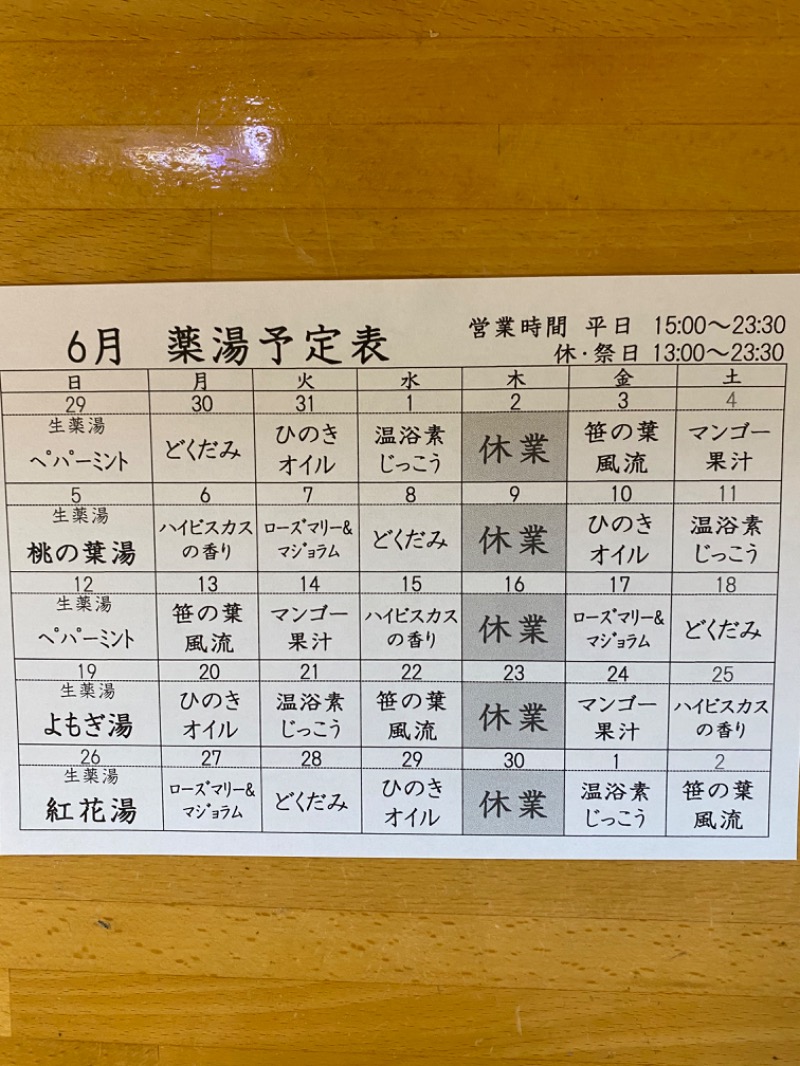 6月 薬湯予定表
営業時間 平日 15:00〜23:30
休・祭日 13:00〜23:30
日 月 火 水 木 金 土
29 30 31 1 2 3 4
生薬湯
ペパーミント どくだみ ひのき
オイル 温浴素
じっこう 休業 笹の葉
風流 マンゴー
果汁
5 6 7 8 9 10 11
生薬湯
桃の葉湯 ハイビスカス
の香り ローズマリー&
マジョラム どくだみ 休業 ひのき
オイル 温浴素
じっこう
12 13 14 15 16 17 18
生薬湯
ペパーミント 笹の葉
風流 マンゴー
果汁 ハイビスカス
の香り 休業 ローズマリー&
マジョラム どくだみ
19 20 21 22 23 24 25
生薬湯
よもぎ湯 ひのき
オイル 温浴素
じっこう 笹の葉
風流 休業 マンゴー
果汁 ハイビスカス
の香り
26 27 28 29 30 1 2
生薬湯
紅花湯 ローズマリー&
マジョラム どくだみ ひのき
オイル 休業 温浴素
じっこう 笹の葉
風流